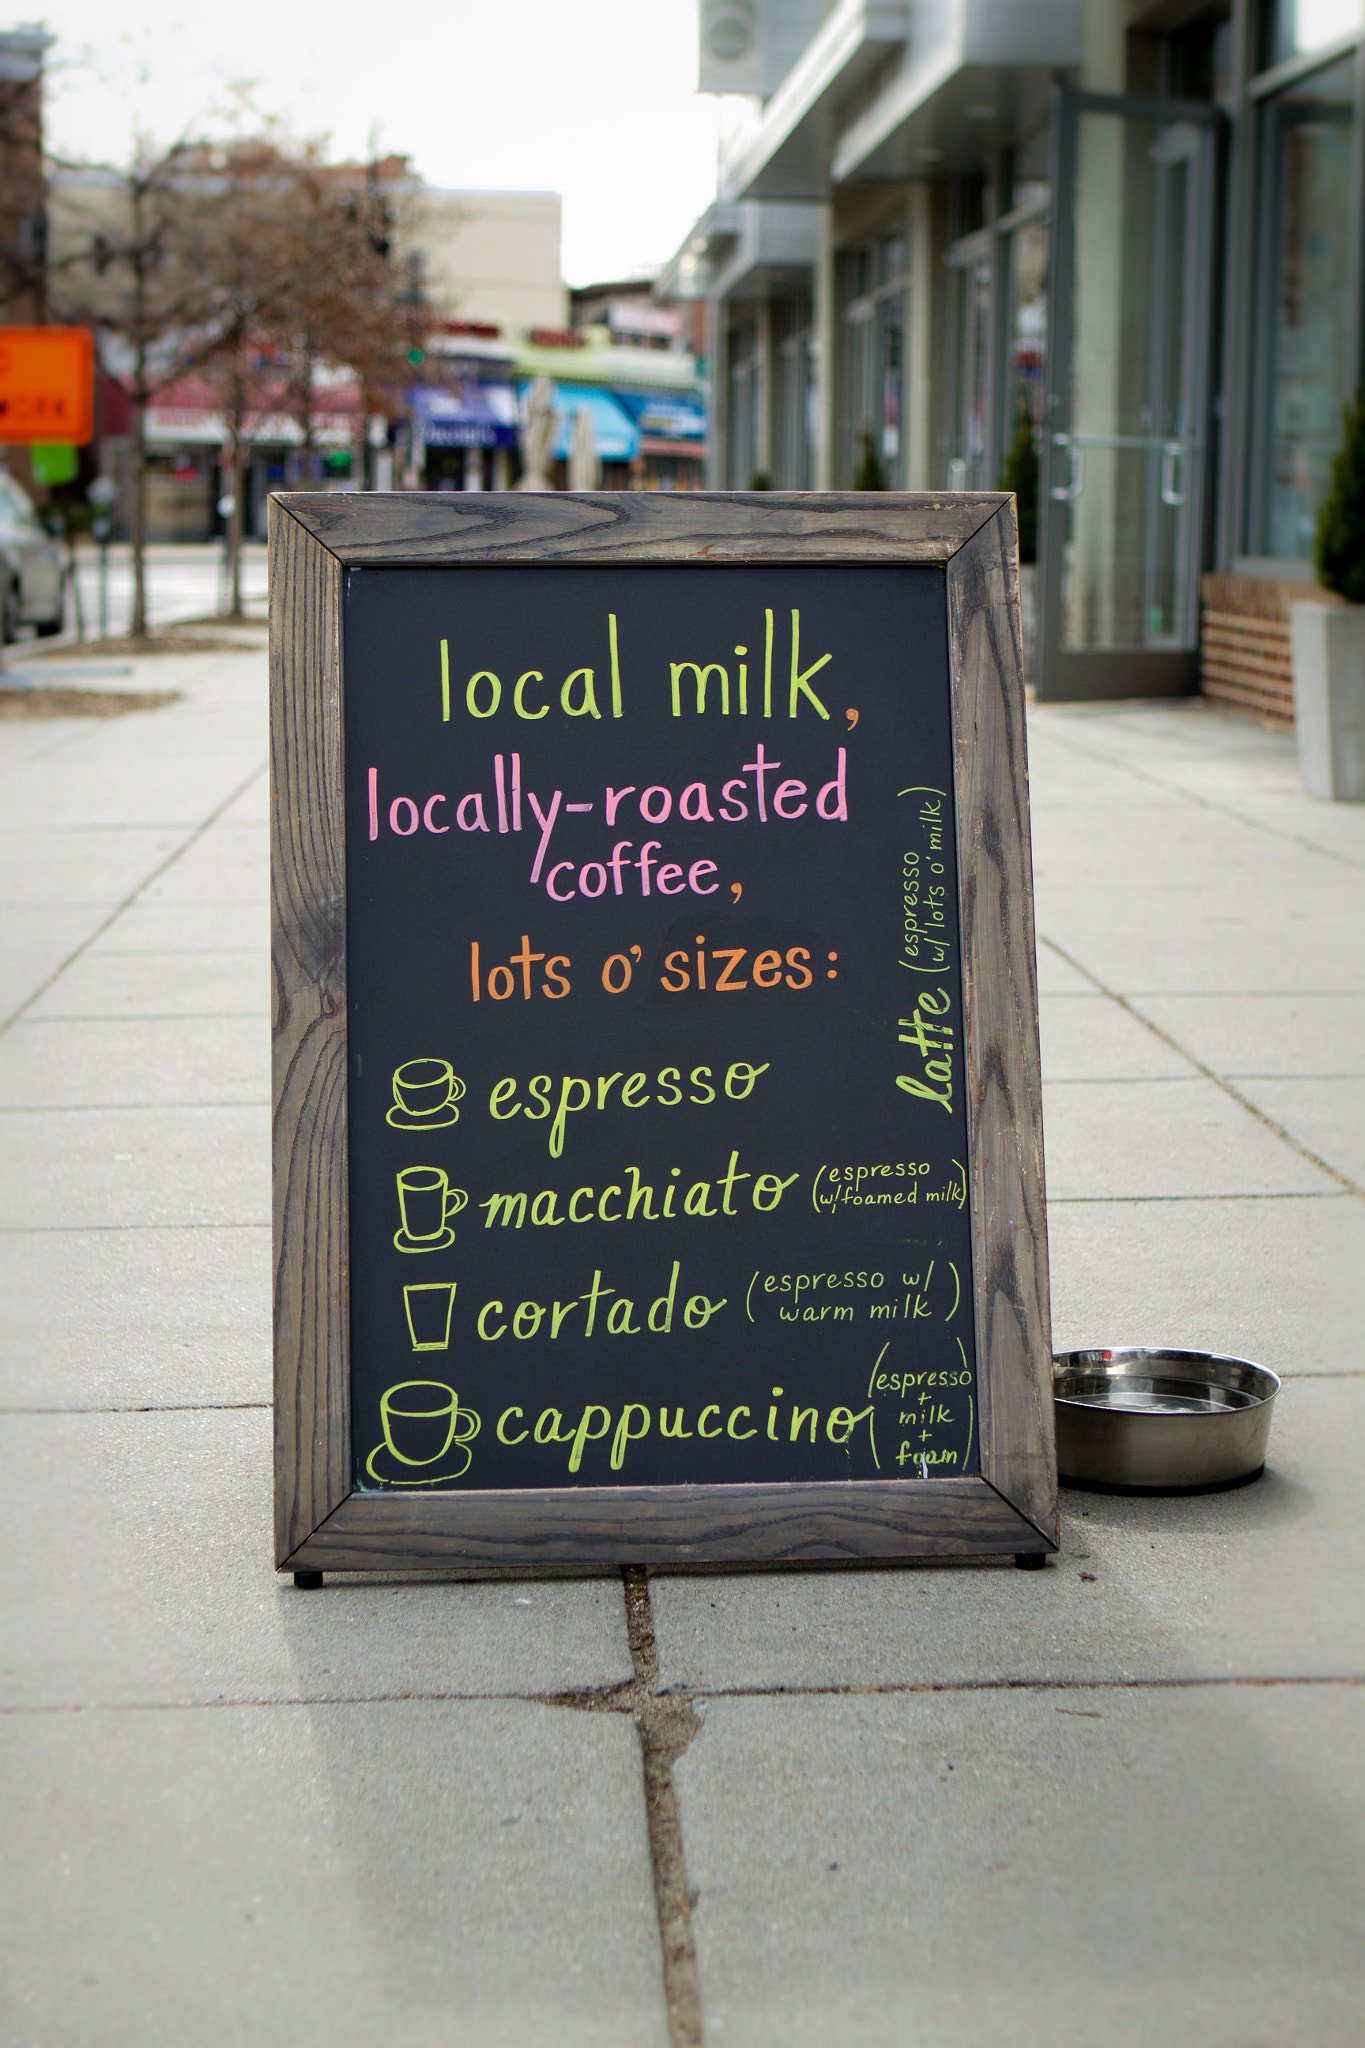 local milk,
locally-roasted
coffee,
lots o' sizes:
espresso
macchiato (espresso
w/ foamed milk)
cortado (espresso w/
warm milk)
cappuccino (espresso)
+
(milk
+
foam)
latte (espresso
w/ lots o' milk)
WORK